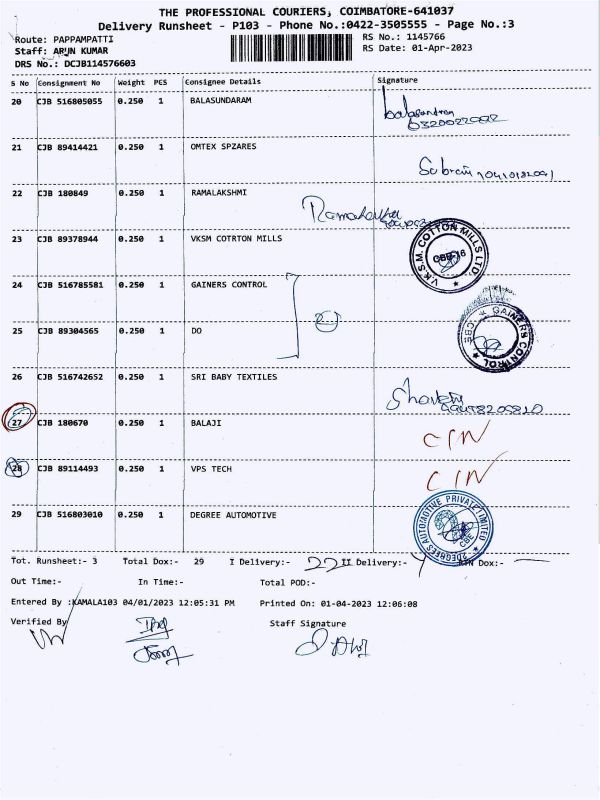 THE PROFESSIONAL COURIERS, COIMBATORE-641037
Delivery Runsheet - P103 - Phone No.:0422-3505555 - Page No.:3
Route: PAPPAMPATTI
RS No.: 1145766
Staff: ARJUN KUMAR
RS Date: 01-Apr-2023
DRS No.: DCJB114576603
S No Consignment No Weight PCS Consignee Details Signature
20 CJB 516805055 0.250 1 BALASUNDARAM
21 CJB 89414421 0.250 1 OMTEX SPZARES
22 CJB 180849 0.250 1 RAMALAKSHMI
23 CJB 89378944 0.250 1 VKSM COTRTON MILLS
V.K.S.M. COTTON MILLS LTD.
24 CJB 516785581 0.250 1 GAINERS CONTROL
25 CJB 89304565 0.250 1 DO
GAINERS CONTROL CBE
26 CJB 516742652 0.250 1 SRI BABY TEXTILES
27 CJB 180670 0.250 1 BALAJI
28 CJB 89114493 0.250 1 VPS TECH
29 CJB 516803010 0.250 1 DEGREE AUTOMOTIVE
2DEGREES AUTOMOTIVE PRIVATE LIMITED
Tot. Runsheet:- 3 Total Dox:- 29 I Delivery:- 22 II Delivery:- RTN Dox:-
Out Time:- In Time:- Total POD:-
Entered By :KAMALA103 04/01/2023 12:05:31 PM Printed On: 01-04-2023 12:06:08
Verified By Staff Signature